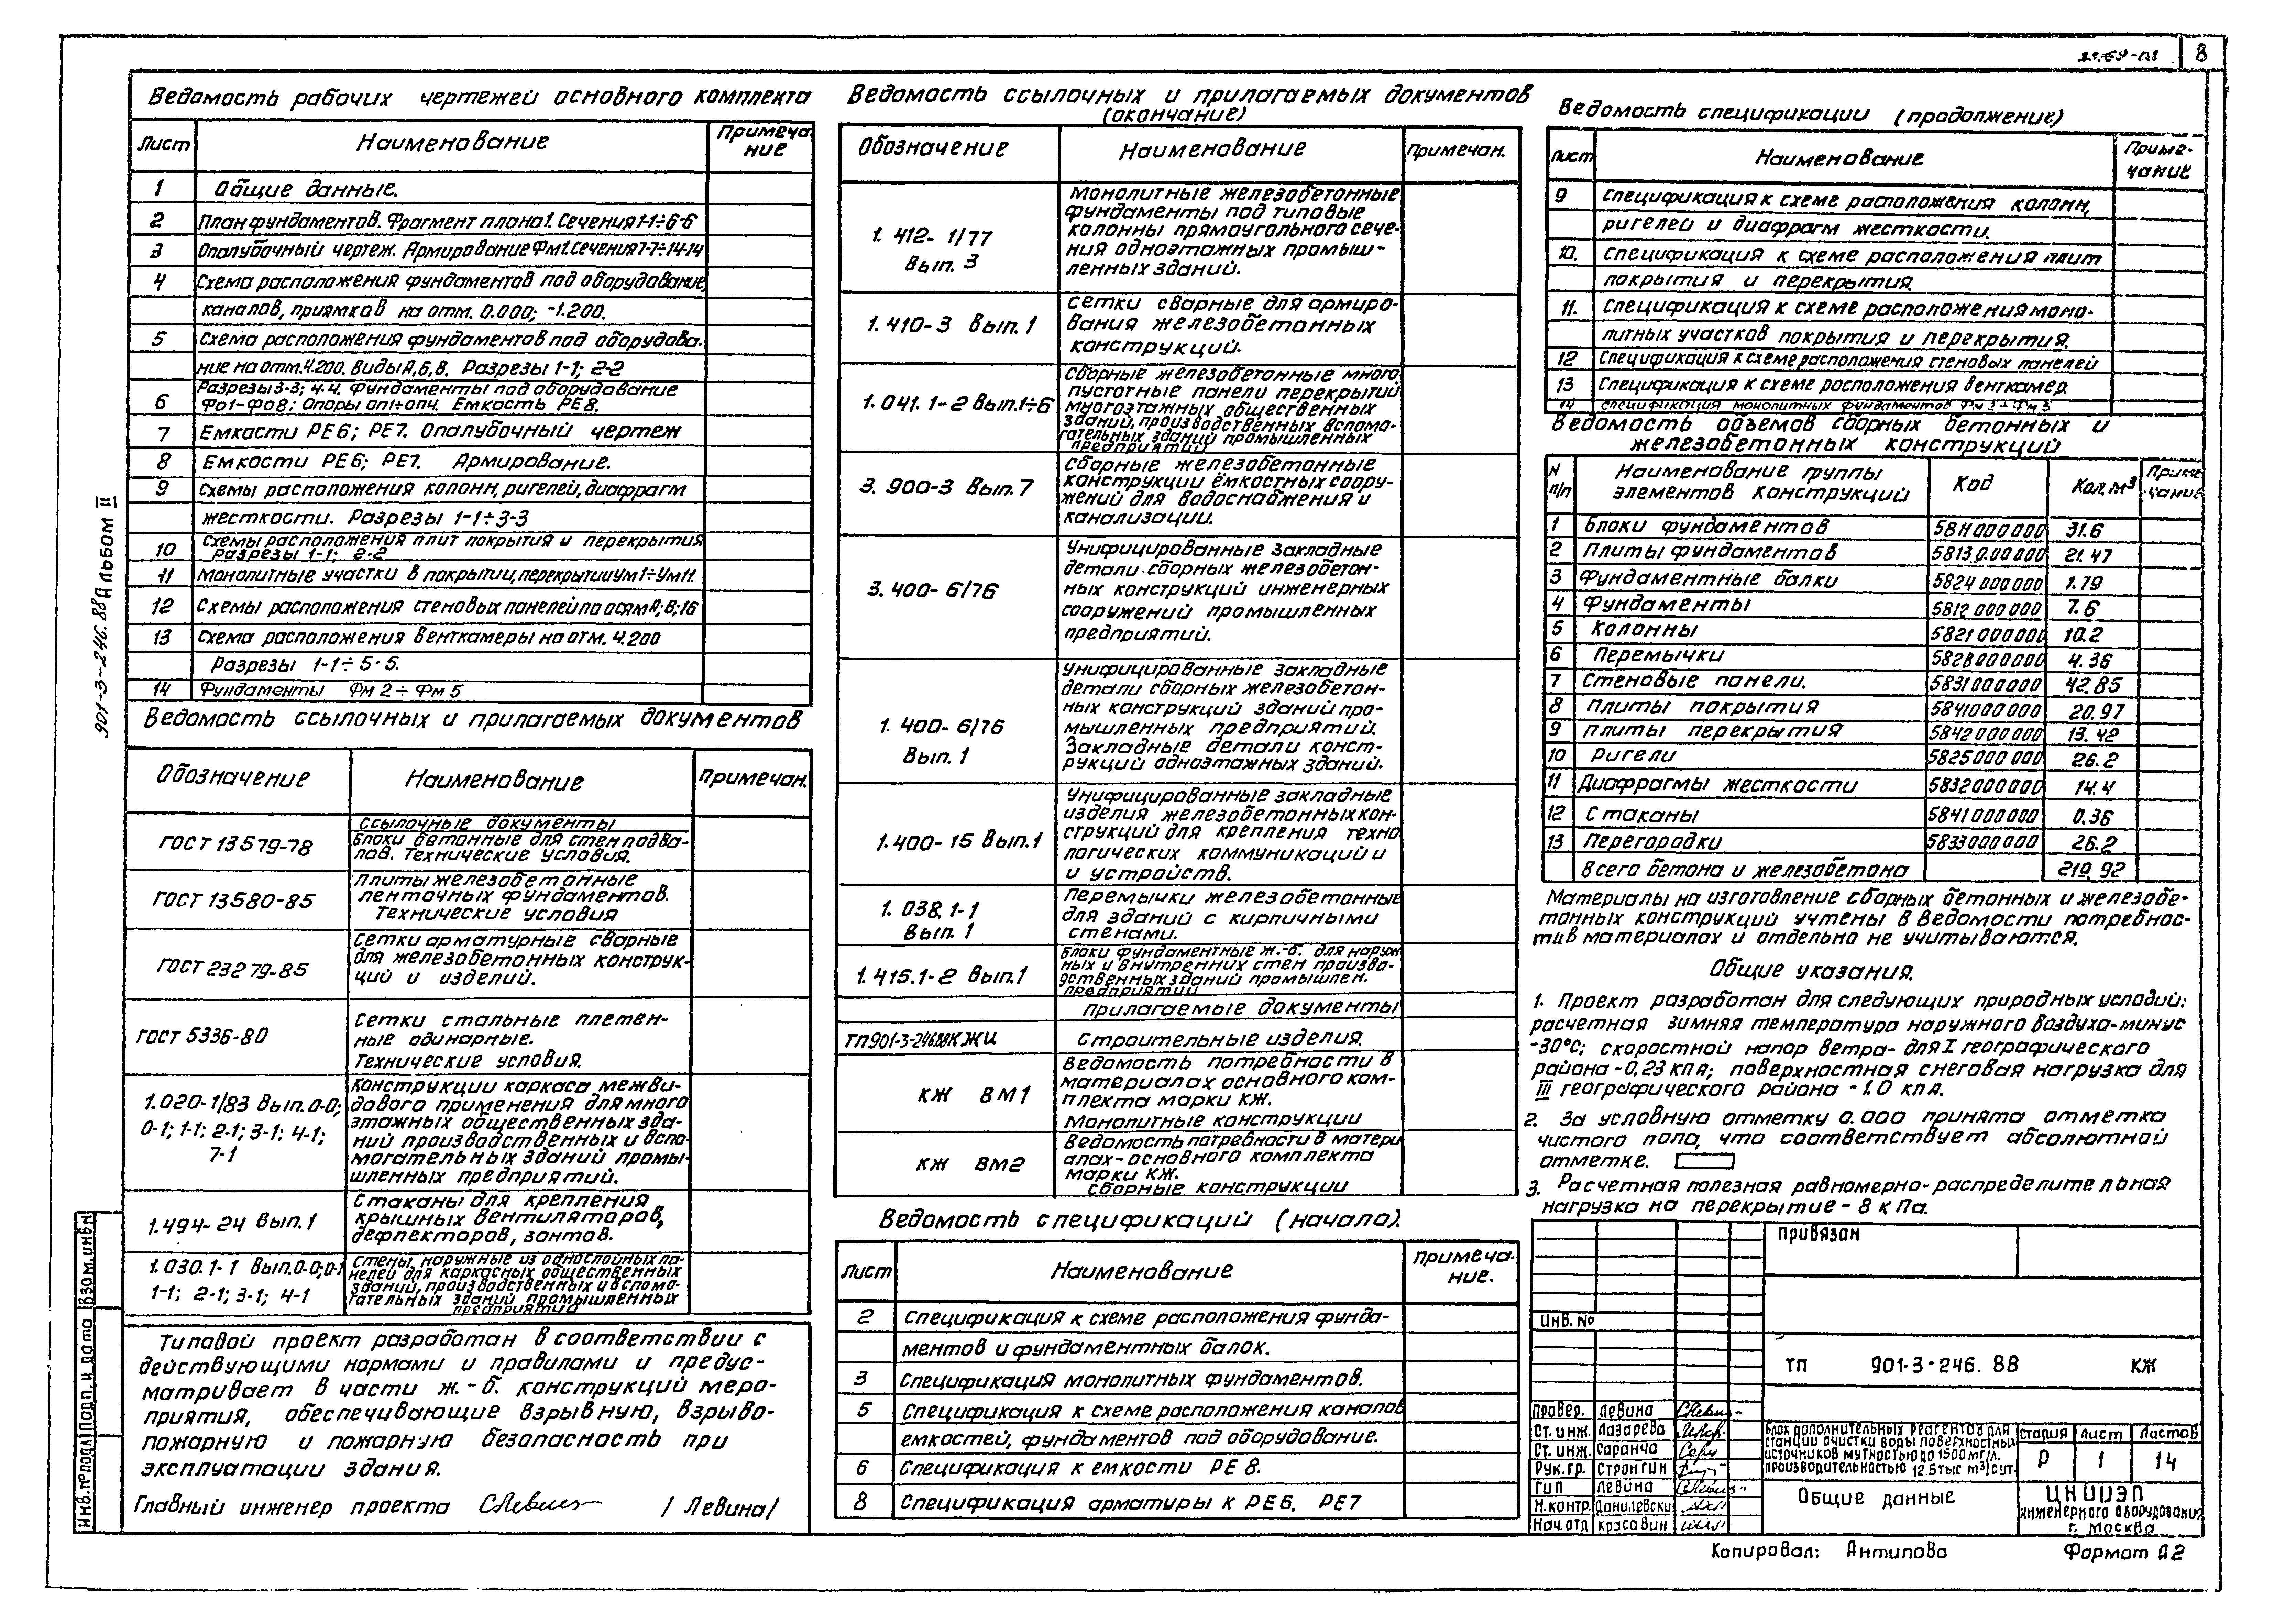 8
Ведомость рабочих чертежей основного комплекта
Лист
Наименование
Примеча
ние
1 Общие данные.
2 План фундаментов. Фрагмент плана 1. Сечения 1-1÷6-6
3 Опалубочный чертеж. Армирование Фм1. Сечения 7-7÷14-14
4 Схема расположения фундаментов под оборудование,
каналов, приямков на отм. 0.000; -1.200.
5 Схема расположения фундаментов под оборудова-
ние на отм. 4.200. Виды А, Б, В. Разрезы 1-1; 2-2
Разрезы 3-3; 4.4. Фундаменты под оборудование
6 Фо1-Фо8; Опоры оп1÷оп4. Емкость РЕ8.
7 Емкости РЕ6; РЕ7. Опалубочный чертеж
8 Емкости РЕ6; РЕ7. Армирование.
9 Схемы расположения колонн, ригелей, диафрагм
жесткости. Разрезы 1-1÷3-3
Схемы расположения плит покрытия и перекрытия
10 Разрезы 1-1; 2-2
11 Монолитные участки в покрытии, перекрытии Ум1÷Ум11.
12 Схемы расположения стеновых панелей по осям А; В; 16
13 Схема расположения венткамеры на отм. 4.200
Разрезы 1-1÷5-5.
14 Фундаменты Фм 2÷Фм 5
Ведомость ссылочных и прилагаемых документов
Обозначение
Наименование
Примечан.
Ссылочные документы
ГОСТ 13579-78
Блоки бетонные для стен подва-
лов. Технические условия.
ГОСТ 13580-85
Плиты железобетонные
ленточных фундаментов.
Технические условия
ГОСТ 23279-85
Сетки арматурные сварные
для железобетонных конструк-
ций и изделий.
ГОСТ 5336-80
Сетки стальные плетен-
ные одинарные.
Технические условия.
1.020-1/83 Вып. 0-0;
0-1; 1-1; 2-1; 3-1; 4-1;
7-1
Конструкции каркаса межви-
дового применения для много
этажных общественных зда-
ний производственных и вспо-
могательных зданий промы-
шленных предприятий.
1.494-24 Вып. 1
Стаканы для крепления
крышных вентиляторов,
дефлекторов, зонтов.
1.030.1-1 Вып. 0-0; 0-1
1-1; 2-1; 3-1; 4-1
Стены, наружные из однослойных па-
нелей для каркасных общественных
зданий, производственных и вспомо-
гательных зданий промышленных
предприятий
Типовой проект разработан в соответствии с
действующими нормами и правилами и предус-
матривает в части ж.-б. конструкций меро-
приятия, обеспечивающие взрывную, взрыво-
пожарную и пожарную безопасность при
эксплуатации здания.
Главный инженер проекта /Левина/
Ведомость ссылочных и прилагаемых документов
(окончание)
Обозначение
Наименование
Примечан.
1. 412- 1/77
Вып. 3
Монолитные железобетонные
фундаменты под типовые
колонны прямоугольного сече-
ния одноэтажных промыш-
ленных зданий.
1. 410-3 Вып. 1
Сетки сварные для армиро-
вания железобетонных
конструкций.
1. 041. 1-2 Вып. 1÷6
Сборные железобетонные много
пустотные панели перекрытий
многоэтажных общественных
зданий, производственных вспомо-
гательных зданий промышленных
предприятий
3. 900-3 Вып. 7
Сборные железобетонные
конструкции ёмкостных соору-
жений для водоснабжения и
канализации.
3. 400- 6/76
Унифицированные закладные
детали сборных железобетон-
ных конструкций инженерных
сооружений промышленных
предприятий.
1. 400- 6/76
Вып. 1
Унифицированные закладные
детали сборных железобетон-
ных конструкций зданий про-
мышленных предприятий.
Закладные детали конст-
рукций одноэтажных зданий.
1. 400- 15 Вып. 1
Унифицированные закладные
изделия железобетонных кон-
струкций для крепления техно
логических коммуникаций и
и устройств.
1. 038. 1-1
Вып. 1
Перемычки железобетонные
для зданий с кирпичными
стенами.
1. 415.1-2 Вып. 1
Блоки фундаментные ж.-б. для наруж
ных и внутренних стен произво-
дственных зданий промышлен.
предприятий
Прилагаемые документы
ТП 901-3-246.88 КЖИ Строительные изделия.
КЖ ВМ1
Ведомость потребности в
материалах основного ком-
плекта марки КЖ.
Монолитные конструкции
КЖ ВМ2
Ведомость потребности в матери
алах- основного комплекта
марки КЖ.
Сборные конструкции
Ведомость спецификаций (начало).
Лист
Наименование
Примеча-
ние.
2 Спецификация к схеме расположения фунда-
ментов и фундаментных балок.
3 Спецификация монолитных фундаментов.
5 Спецификация к схеме расположения каналов
емкостей, фундаментов под оборудование.
6 Спецификация к емкости РЕ 8.
8 Спецификация арматуры к РЕ6, РЕ7
Ведомость спецификации (продолжение)
Лист
Наименование
Приме-
чание
9 Спецификация к схеме расположения колонн,
ригелей и диафрагм жесткости.
10. Спецификация к схеме расположения плит
покрытия и перекрытия.
11. Спецификация к схеме расположения моно-
литных участков покрытия и перекрытия.
12 Спецификация к схеме расположения стеновых панелей
13 Спецификация к схеме расположения венткамер.
14 Спецификация монолитных фундаментов Фм 3 ÷ Фм 5
Ведомость объемов сборных бетонных и
железобетонных конструкций
N
п/п
Наименование группы
элементов конструкций
Код
Кол. м³
Приме
чание
1 Блоки фундаментов 5811000000 31.6
2 Плиты фундаментов 5813000000 21.47
3 Фундаментные балки 5824000000 1.79
4 Фундаменты 5812000000 7.6
5 Колонны 5821000000 10.2
6 Перемычки 5828000000 4.36
7 Стеновые панели. 5831000000 42.85
8 Плиты покрытия 5841000000 20.97
9 Плиты перекрытия 5842000000 13.42
10 Ригели 5825000000 26.2
11 Диафрагмы жесткости 5832000000 14.4
12 Стаканы 5841000000 0.36
13 Перегородки 5833000000 26.2
Всего бетона и железобетона 219.92
Материалы на изготовление сборных бетонных и железобе-
тонных конструкций учтены в Ведомости потребнос-
ти в материалах и отдельно не учитываются.
Общие указания.
1. Проект разработан для следующих природных условий:
расчетная зимняя температура наружного воздуха-минус
-30°С; скоростной напор ветра- для I географического
района -0,23 кПа; поверхностная снеговая нагрузка для
III географического района -1.0 кПа.
2. За условную отметку 0.000 принята отметка
чистого пола, что соответствует абсолютной
отметке.
3. Расчетная полезная равномерно-распределительная
нагрузка на перекрытие - 8 кПа.
Привязан
Инв. №
ТП 901-3-246.88 КЖ
Провер. Левина
Ст. инж. Лазарева
Ст. инж. Саранча
Рук. гр. Стронгин
ГИП Левина
Н.контр. Данилевски
Нач. отд Красавин
Блок дополнительных реагентов для
станции очистки воды поверхностных
источников мутностью до 1500 мг/л.
производительностью 12.5 тыс м³/сут.
Стадия Лист Листов
Р 1 14
Общие данные
ЦНИИЭП
инженерного оборудования
г. Москва
Копировал: Антипова Формат А2
901-3-246.88 Альбом II
Инв. № подл. Подп. и дата Взам. инв. №